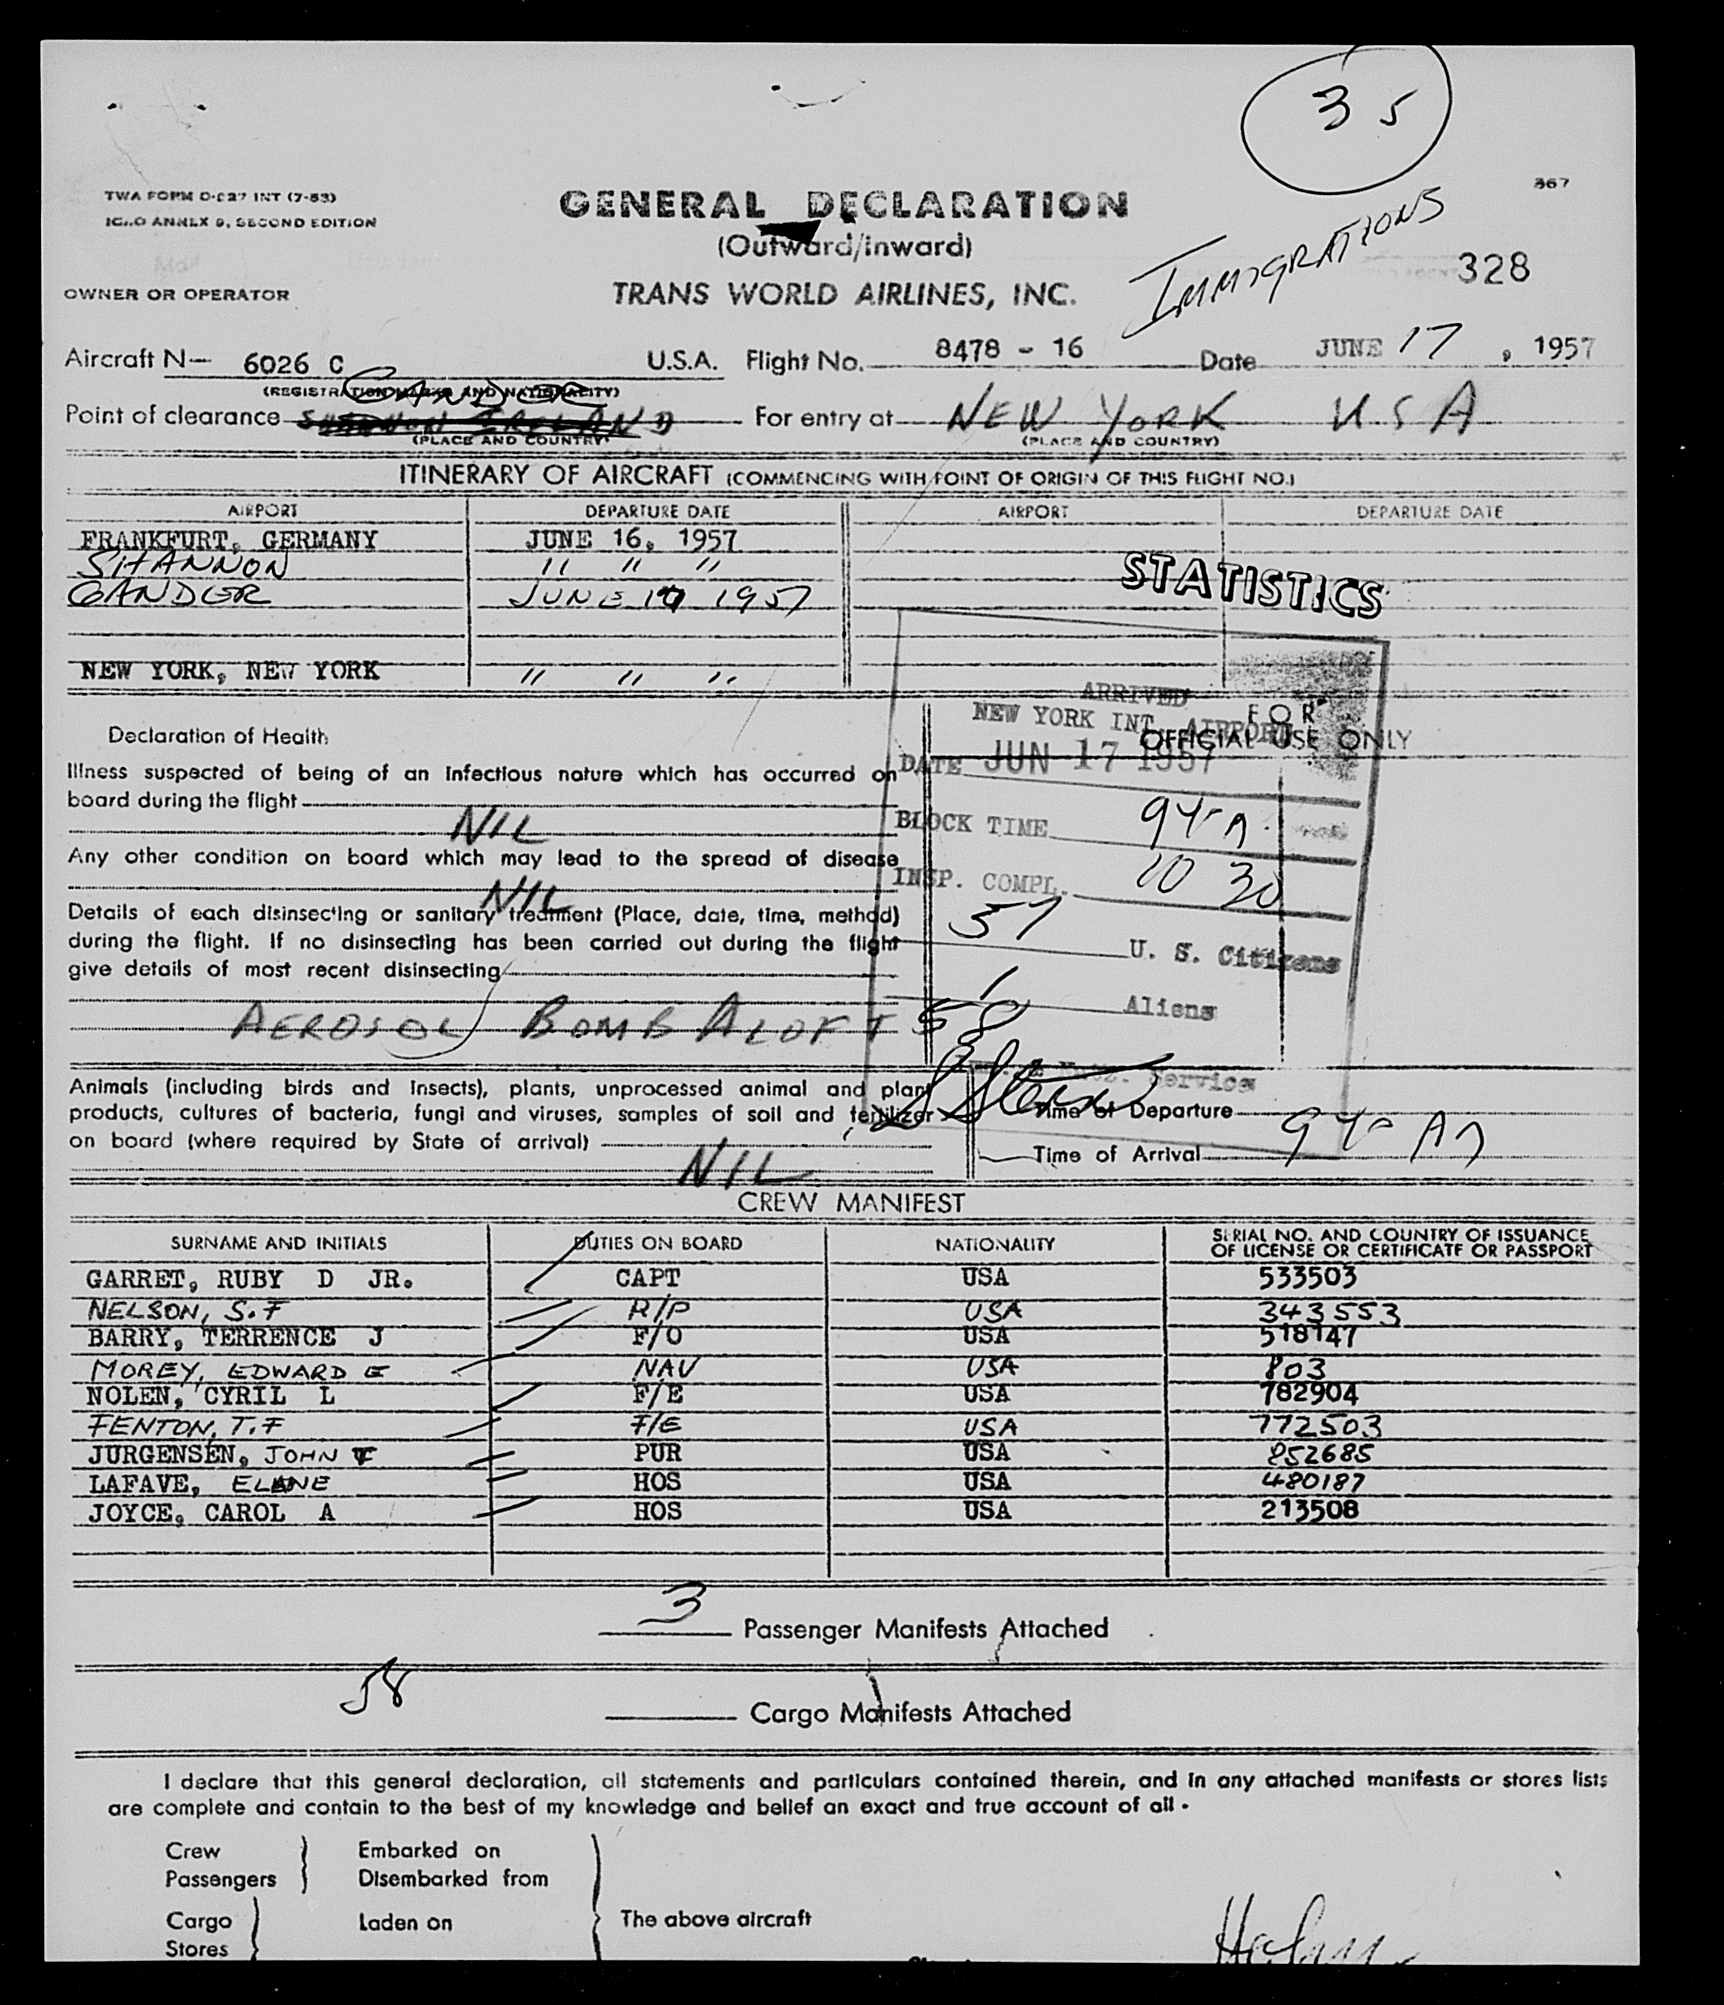 35
TWA FORM D-027 INT (7-53)
ICAO ANNEX 9, SECOND EDITION
GENERAL DECLARATION
(Outward/Inward)
367
IMMIGRATIONS
328
OWNER OR OPERATOR
TRANS WORLD AIRLINES, INC.
Aircraft N- 6026 C U.S.A. Flight No. 8478 - 16 Date JUNE 17, 1957
(REGISTRATION MARKS AND NATIONALITY)
GANDER
Point of clearance SHANNON IRELAND For entry at NEW YORK USA
(PLACE AND COUNTRY) (PLACE AND COUNTRY)
ITINERARY OF AIRCRAFT (COMMENCING WITH POINT OF ORIGIN OF THIS FLIGHT NO.)
AIRPORT DEPARTURE DATE AIRPORT DEPARTURE DATE
FRANKFURT, GERMANY JUNE 16, 1957
SHANNON " " "
GANDER JUNE 17 1957
STATISTICS
NEW YORK, NEW YORK " " "
ARRIVED
NEW YORK INT. AIRPORT
DATE JUN 17 1957
BLOCK TIME 945 A.
INSP. COMPL. 10 30
57 U. S. Citizens
1 Aliens
58
Service
FOR
OFFICIAL USE ONLY
Declaration of Health
Illness suspected of being of an infectious nature which has occurred on
board during the flight
NIL
Any other condition on board which may lead to the spread of disease
NIL
Details of each disinsecting or sanitary treatment (Place, date, time, method)
during the flight. If no disinsecting has been carried out during the flight
give details of most recent disinsecting
AEROSOL BOMB ALOFT
Animals (including birds and insects), plants, unprocessed animal and plant
products, cultures of bacteria, fungi and viruses, samples of soil and fertilizer
on board (where required by State of arrival)
NIL
Time of Departure
Time of Arrival 945 AM
CREW MANIFEST
SURNAME AND INITIALS DUTIES ON BOARD NATIONALITY SERIAL NO. AND COUNTRY OF ISSUANCE
OF LICENSE OR CERTIFICATE OR PASSPORT
GARRET, RUBY D JR. CAPT USA 533503
NELSON, S.F R/P USA 343553
BARRY, TERRENCE J F/O USA 518147
MOREY, EDWARD E NAV USA 803
NOLEN, CYRIL L F/E USA 782904
FENTON, T.F F/E USA 772503
JURGENSEN, JOHN F PUR USA 852685
LAFAVE, ELANE HOS USA 480187
JOYCE, CAROL A HOS USA 213508
3 Passenger Manifests Attached
58
Cargo Manifests Attached
I declare that this general declaration, all statements and particulars contained therein, and in any attached manifests or stores lists
are complete and contain to the best of my knowledge and belief an exact and true account of all -
Crew Embarked on
Passengers Disembarked from
Cargo Laden on The above aircraft
Stores